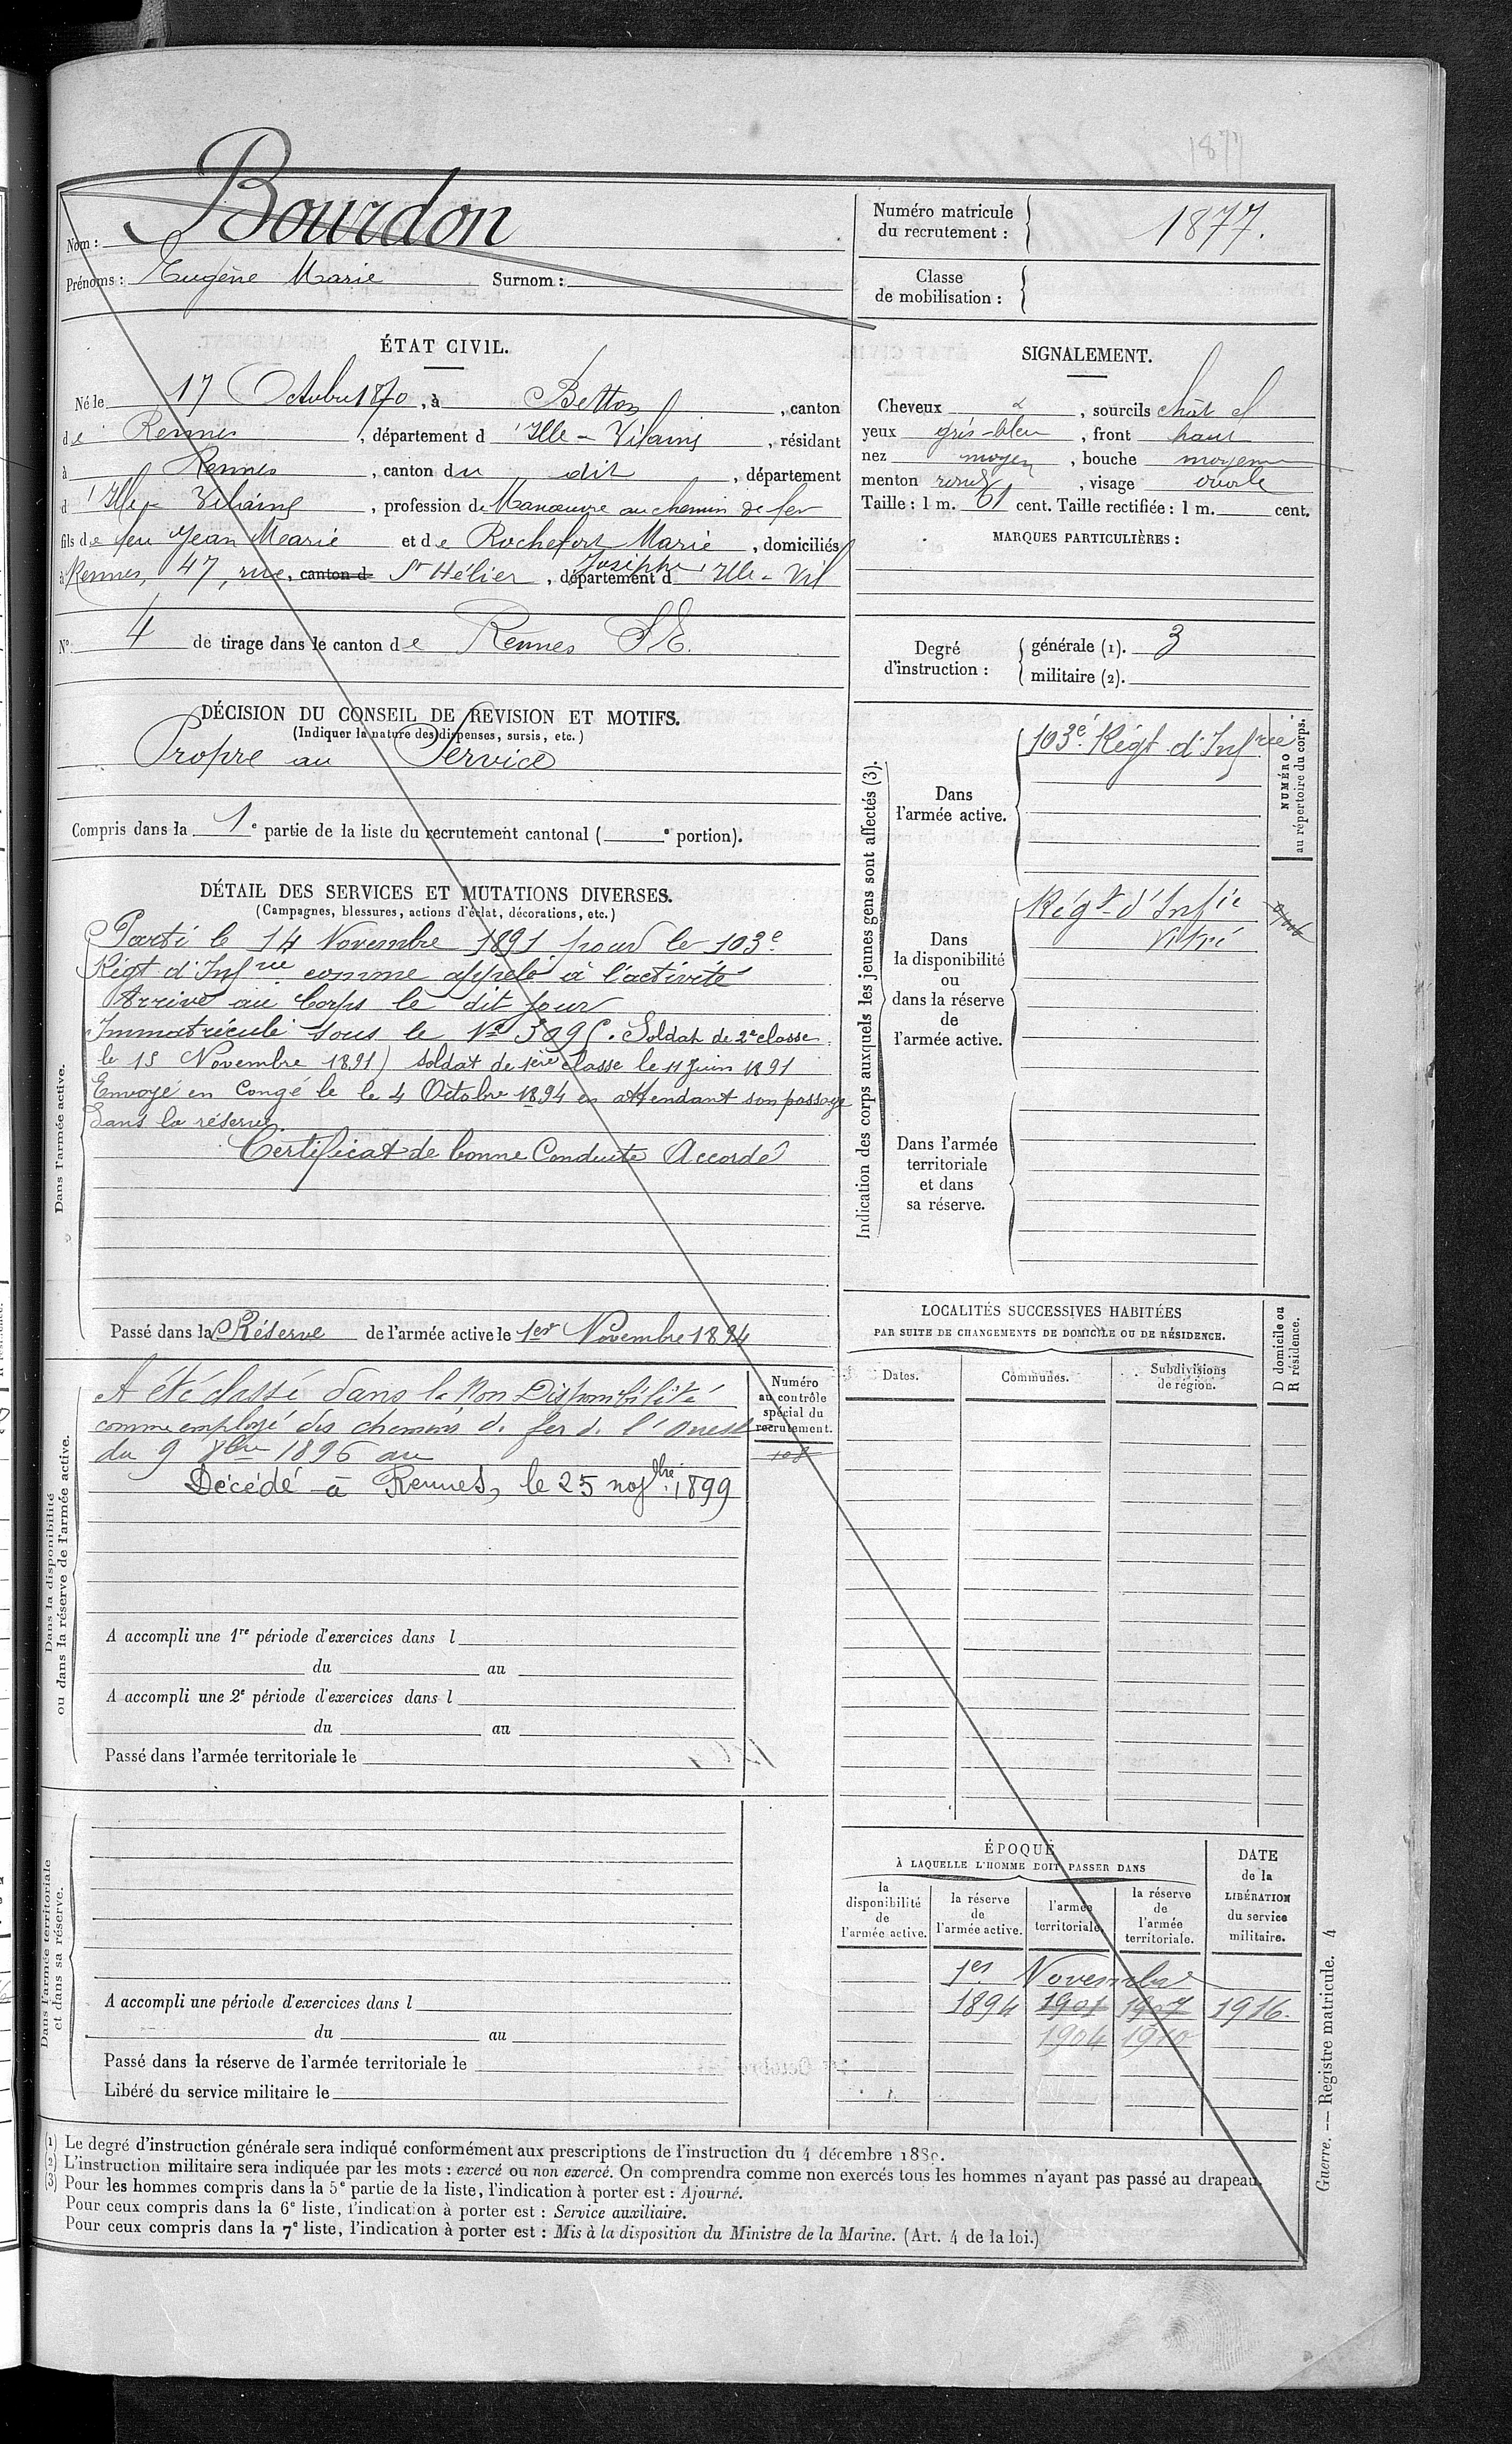 1877
Nom : Bourdon
Prénoms : Eugène Marie Surnom :
Numéro matricule
du recrutement : 1877.
Classe
de mobilisation :
ÉTAT CIVIL.
Né le 17 Octobre 1870, à Betton, canton
de Rennes, département d'Ille-Vilaine, résidant
à Rennes, canton du dit, département
d'Ille-Vilaine, profession de Manœuvre au chemin de fer
fils de feu Jean Marie et de Rochefort Marie, domiciliés
Josèphe
à Rennes, 47, rue, canton d St Hélier, département d Ille-Vil
No 4 de tirage dans le canton de Rennes S E.
SIGNALEMENT.
Cheveux , sourcils chât
yeux gris-bleu, front haut
nez moyen, bouche moyenne
menton rond, visage ovale
Taille : 1 m. 61 cent. Taille rectifiée : 1 m. cent.
MARQUES PARTICULIÈRES :
Degré
d'instruction :
générale (1). 3
militaire (2).
DÉCISION DU CONSEIL DE REVISION ET MOTIFS.
(Indiquer la nature des dispenses, sursis, etc.)
Propre au Service
Compris dans la 1e partie de la liste du recrutement cantonal ( e portion).
DÉTAIL DES SERVICES ET MUTATIONS DIVERSES.
(Campagnes, blessures, actions d'éclat, décorations, etc.)
Dans l'armée active.
Parti le 14 Novembre 1891 pour le 103e
Régt d'Infrie comme appelé à l'activité
Arrivé au Corps le dit jour
Immatriculé sous le No . Soldat de 2e classe
le 15 Novembre 1891) soldat de 1ère classe le 11 Juin 1891
Envoyé en Congé le le 4 Octobre 1894 en attendant son passage
dans la réserve.
Certificat de bonne Conduite Accordé
Passé dans la Réserve de l'armée active le 1er Novembre 1894
Indication des corps auxquels les jeunes gens sont affectés (3).
NUMÉRO
au répertoire du corps.
Dans
l'armée active.
103e Régt d'Infrie
Dans
la disponibilité
ou
dans la réserve
de
l'armée active.
Régt d'Infie
Vitré
Dans l'armée
territoriale
et dans
sa réserve.
Dans la disponibilité
ou dans la réserve de l'armée active.
A été classé dans la Non Disponibilité
comme employé des chemins de fer de l'Ouest
du 9 Xbre 1896 au
Décédé à Rennes, le 25 novbre 1899
Numéro
au contrôle
spécial du
recrutement.
108
A accompli une 1re période d'exercices dans l
du au
A accompli une 2e période d'exercices dans l
du au
Passé dans l'armée territoriale le
LOCALITÉS SUCCESSIVES HABITÉES
PAR SUITE DE CHANGEMENTS DE DOMICILE OU DE RÉSIDENCE.
Dates.
Communes.
Subdivisions
de région.
D domicile ou
R résidence.
Dans l'armée territoriale
et dans sa réserve.
A accompli une période d'exercices dans l
du au
Passé dans la réserve de l'armée territoriale le
Libéré du service militaire le
ÉPOQUE
À LAQUELLE L'HOMME DOIT PASSER DANS
la
disponibilité
de
l'armée active.
la réserve
de
l'armée active.
l'armée
territoriale.
la réserve
de
l'armée
territoriale.
DATE
de la
LIBÉRATION
du service
militaire.
1er Novembre
1894 1901 1907 1916.
1904 1910
(1) Le degré d'instruction générale sera indiqué conformément aux prescriptions de l'instruction du 4 décembre 1889.
(2) L'instruction militaire sera indiquée par les mots : exercé ou non exercé. On comprendra comme non exercés tous les hommes n'ayant pas passé au drapeau.
(3) Pour les hommes compris dans la 5e partie de la liste, l'indication à porter est : Ajourné.
Pour ceux compris dans la 6e liste, l'indication à porter est : Service auxiliaire.
Pour ceux compris dans la 7e liste, l'indication à porter est : Mis à la disposition du Ministre de la Marine. (Art. 4 de la loi.)
Guerre. — Registre matricule. 4